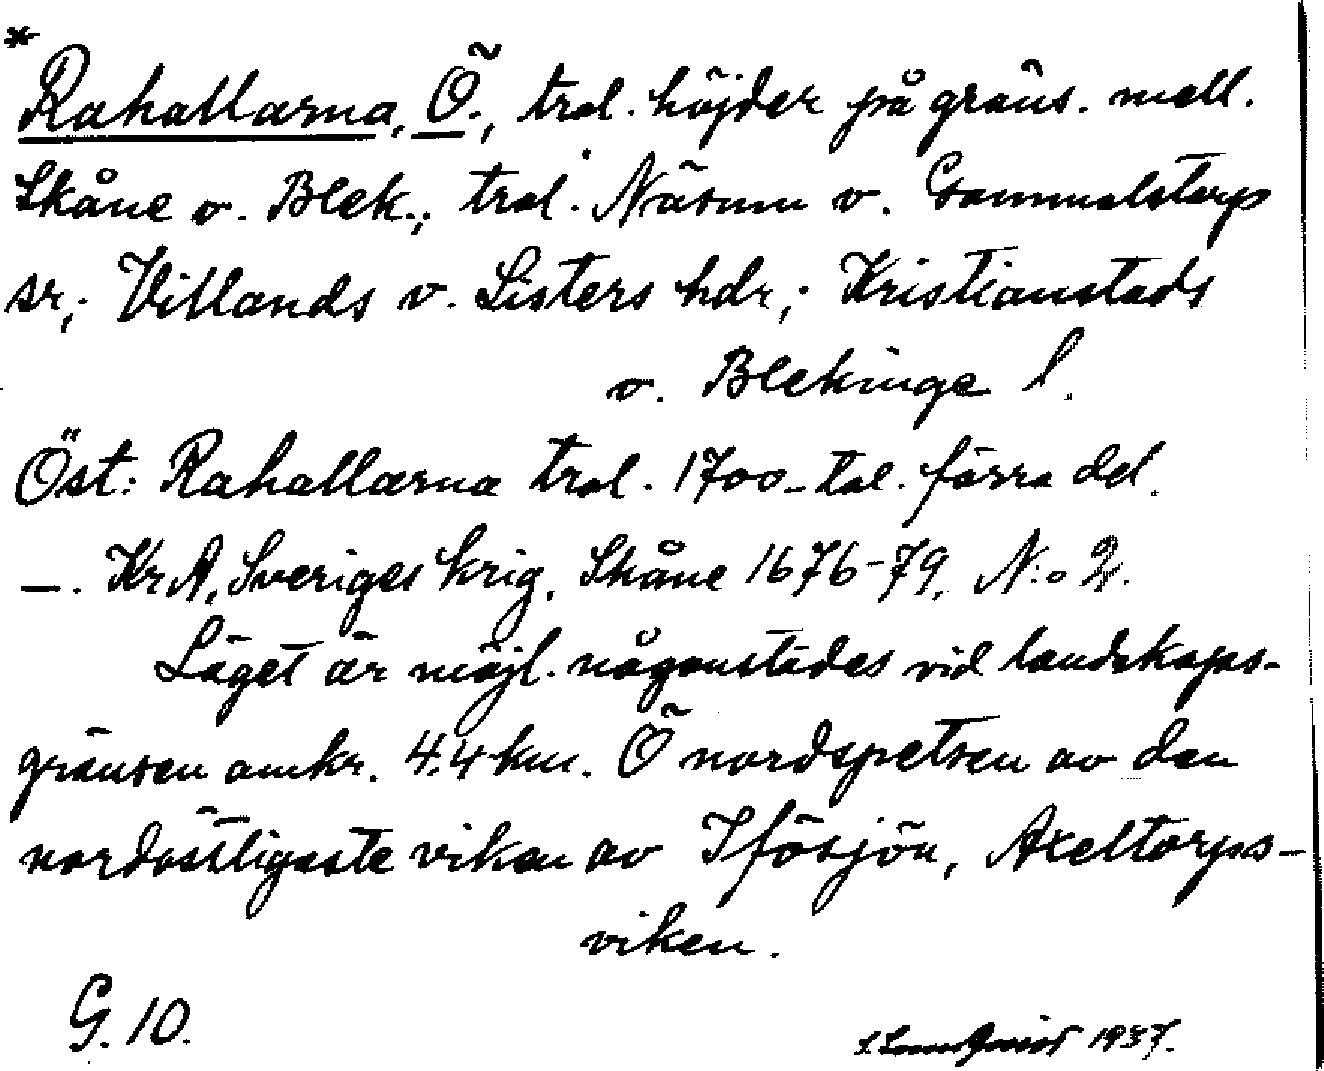 *
Rahallarna, Ö., trol. höjder på gräns. mell.
Skåne o. Blek.; trol. Näsum o. Gammalstorp
sr; Villands o. Listers hdr; Kristianstads
o. Blekinge l.
Öst: Rahallarna trol. 1700-tal. förra del.
—. KrA, Sveriges krig, Skåne 1676-79, N:o 2.
Läget är möjl. någonstädes vid landskaps-
gränsen omkr. 4,4 km. Ö nordspetsen av den
nordöstligaste viken av Ifösjön, Axeltorps-
viken.
G. 10.
1937.